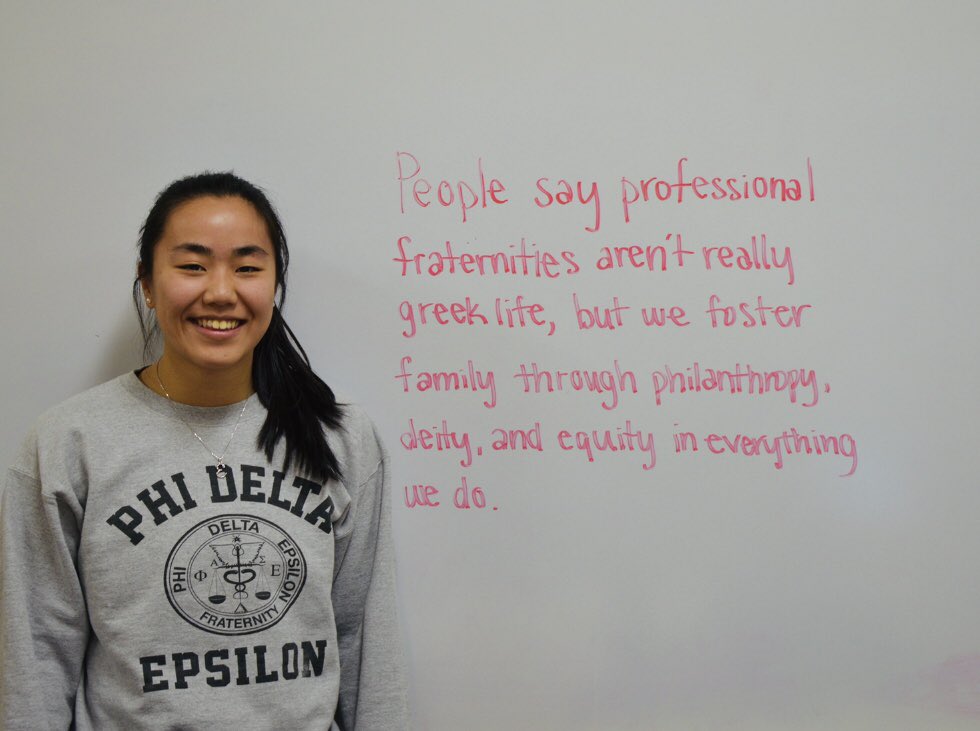 People say professional
fraternities aren't really
greek life, but we foster
family through philanthropy,
deity, and equity in everything
we do.
PHI DELTA
EPSILON
PHI DELTA EPSILON
FRATERNITY
Φ Α Σ Ε